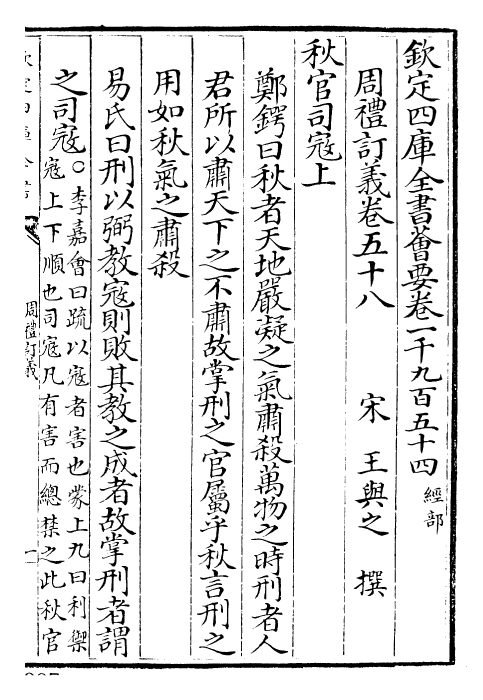 欽定四庫全書薈要卷一千九百五十四 經部
周禮訂義卷五十八 宋 王與之 撰
秋官司寇上
鄭鍔曰秋者天地嚴凝之氣肅殺萬物之時刑者人
君所以肅天下之不肅故掌刑之官屬乎秋言刑之
用如秋氣之肅殺
易氏曰刑以弼教寇則敗其教之成者故掌刑者謂
之司寇○李嘉會曰疏以寇者害也蒙上九曰利禦
寇上下順也司寇凡有害而總禁之此秋官
周禮訂義
一